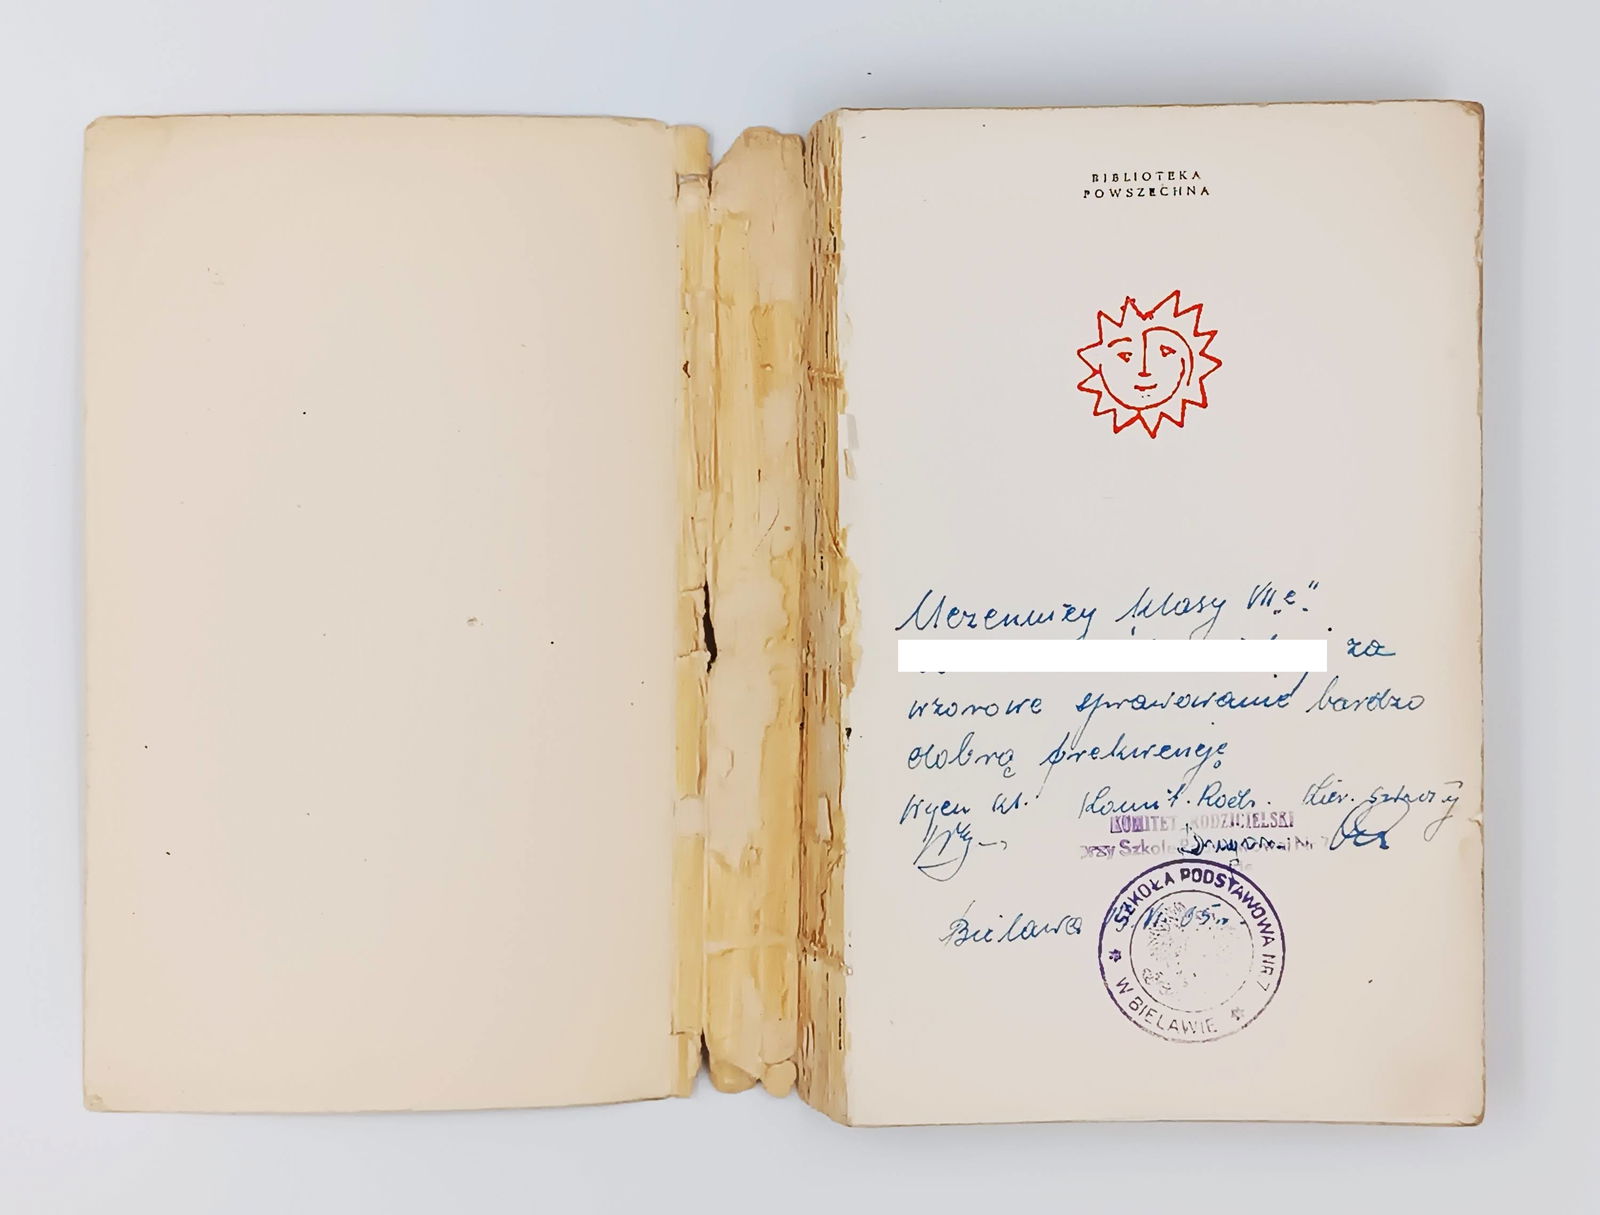 BIBLIOTEKA
POWSZECHNA
Uczennicy klasy VII „e"
za
wzorowe sprawowanie bardzo
dobrą frekwencję
Wych kl. Komit. Rodz. Kier. szkoły
KOMITET RODZICIELSKI
przy Szkole Podstawowej Nr 7
Bielawa
SZKOŁA PODSTAWOWA NR 7
W BIELAWIE